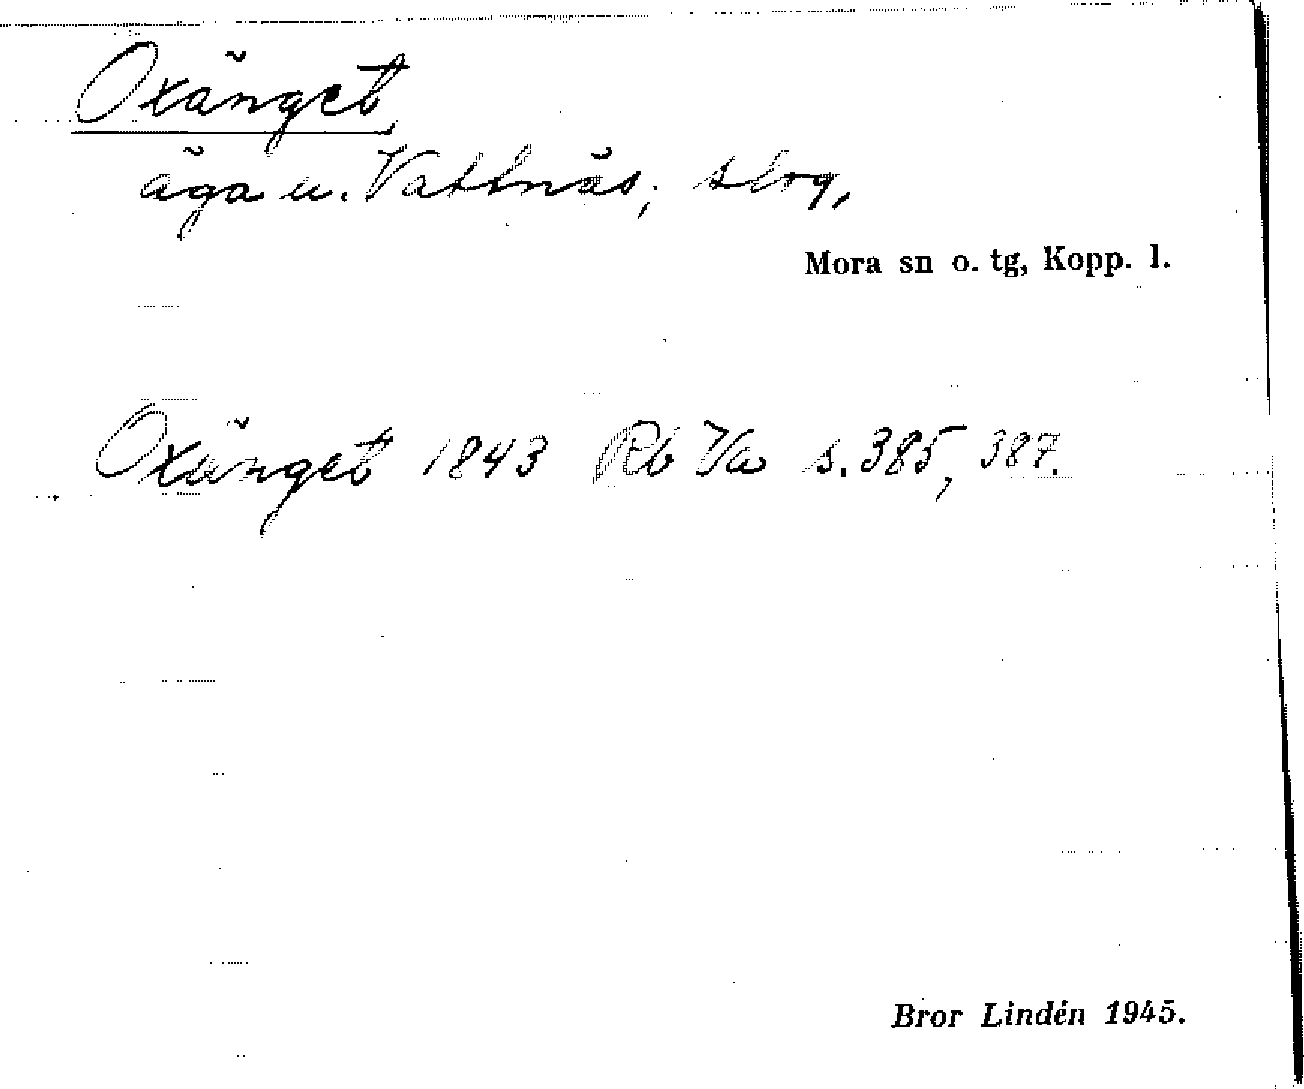 Oxänget
äga u. Vattnäs, skog,
Mora sn o. tg, Kopp. l.
Oxänget 1843 Rb Va s. 385, 387.
Bror Lindén 1945.